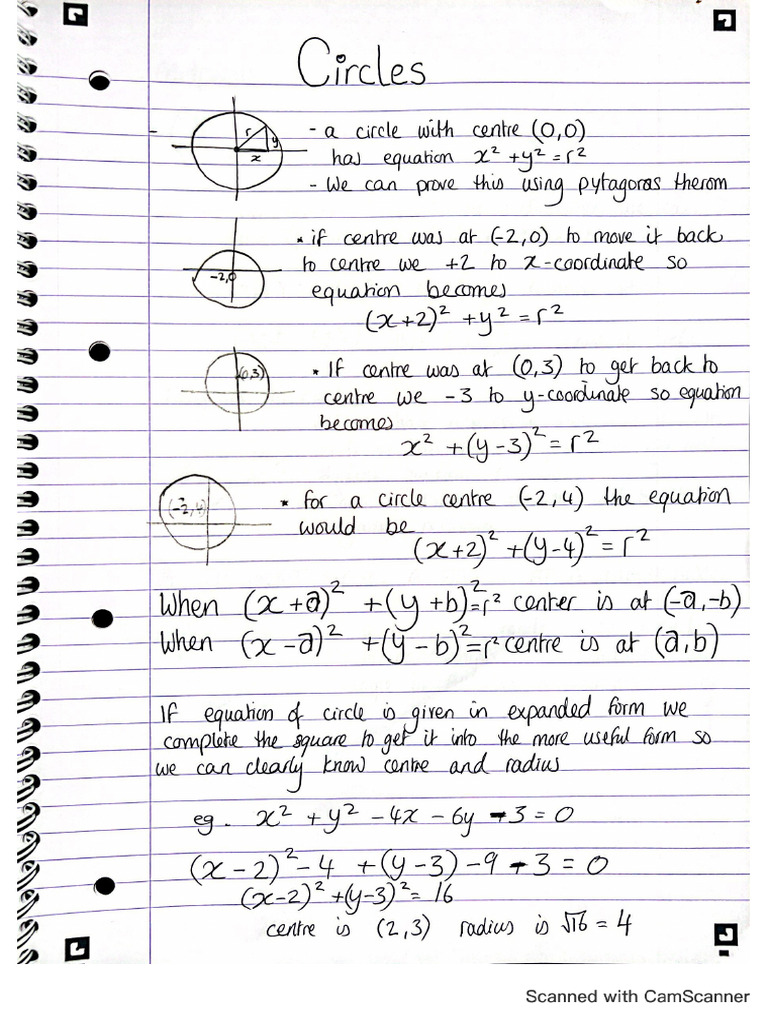 Circles
r
y
x
- a circle with centre (0,0)
has equation x² + y² = r²
- We can prove this using pytagoras therom
-2,0
* if centre was at (-2,0) to move it back
to centre we +2 to x-coordinate so
equation becomes
(x+2)² + y² = r²
(0,3)
* If centre was at (0,3) to get back to
centre we -3 to y-coordinate so equation
becomes
x² + (y-3)² = r²
(-2,4)
* for a circle centre (-2,4) the equation
would be
(x+2)² + (y-4)² = r²
When (x+a)² + (y+b)² = r² center is at (-a,-b)
When (x-a)² + (y-b)² = r² centre is at (a,b)
If equation of circle is given in expanded form we
complete the square to get it into the more useful form so
we can clearly know centre and radius
eg. x² + y² - 4x - 6y - 3 = 0
(x-2)² - 4 + (y-3) - 9 - 3 = 0
(x-2)² + (y-3)² = 16
centre is (2,3) radius is √16 = 4
Scanned with CamScanner